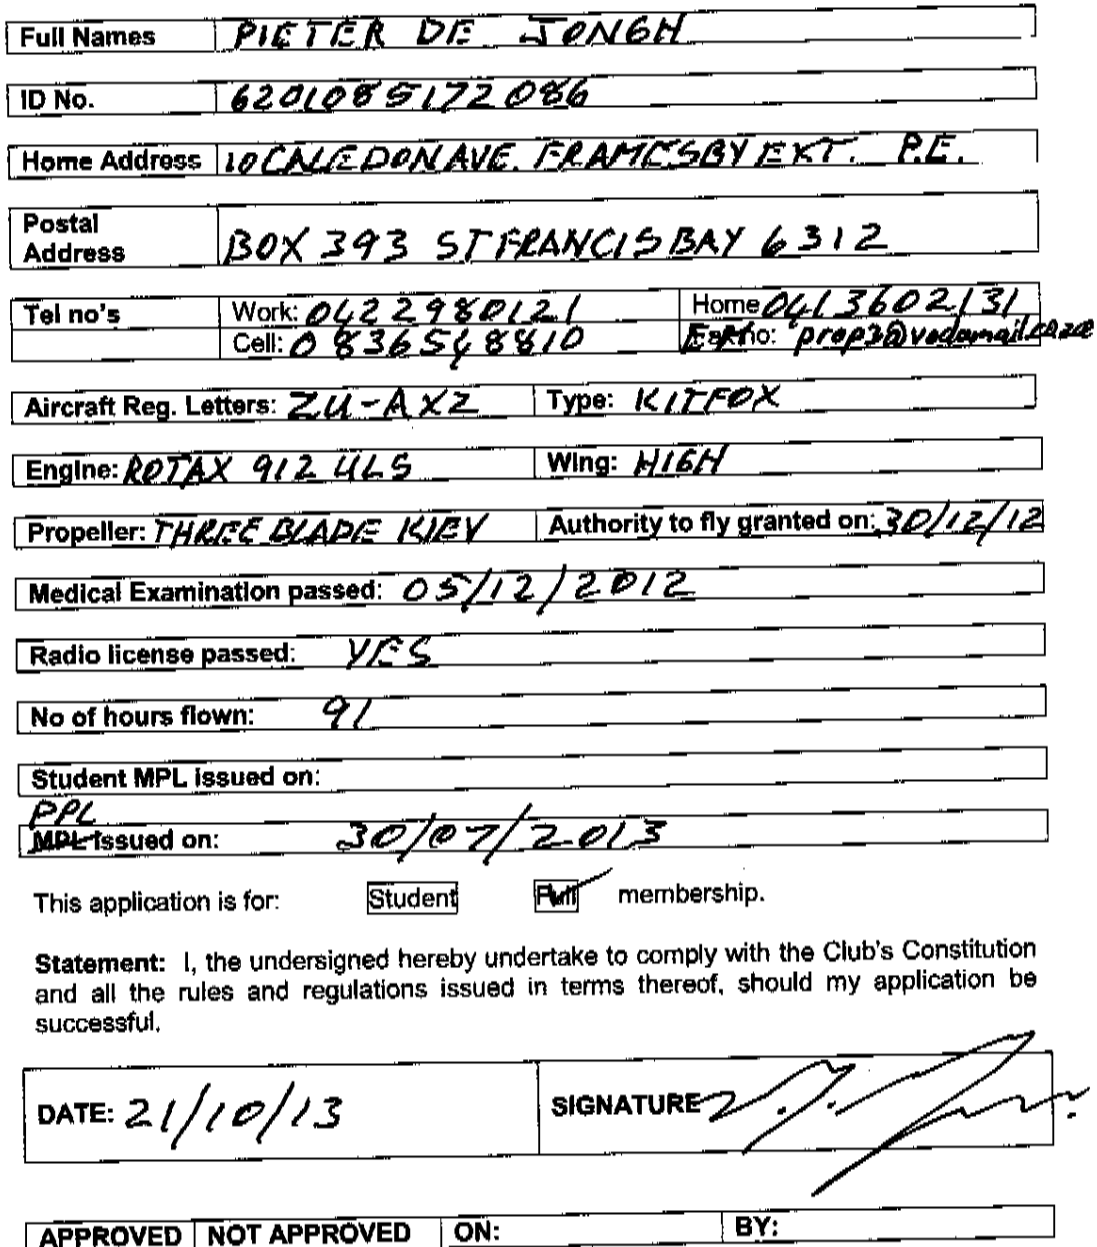 Full Names PIETER DE JONGH
ID No. 6201085172086
Home Address 10 CALEDON AVE. FRAMESBY EXT. P.E.
Postal
Address BOX 393 ST FRANCIS BAY 6312
Tel no's Work: 0422980121 Home 0413602131
Cell: 0836548810 prop3@vodamail.co.za
Aircraft Reg. Letters: ZU-AXZ Type: KITFOX
Engine: ROTAX 912 ULS Wing: HIGH
Propeller: THREE BLADE KIEV Authority to fly granted on: 30/12/12
Medical Examination passed: 05/12/2012
Radio license passed: YES
No of hours flown: 91
Student MPL issued on:
PPL
MPL issued on: 30/07/2013
This application is for: Student Full membership.
Statement: I, the undersigned hereby undertake to comply with the Club's Constitution
and all the rules and regulations issued in terms thereof, should my application be
successful.
DATE: 21/10/13 SIGNATURE
APPROVED NOT APPROVED ON: BY: